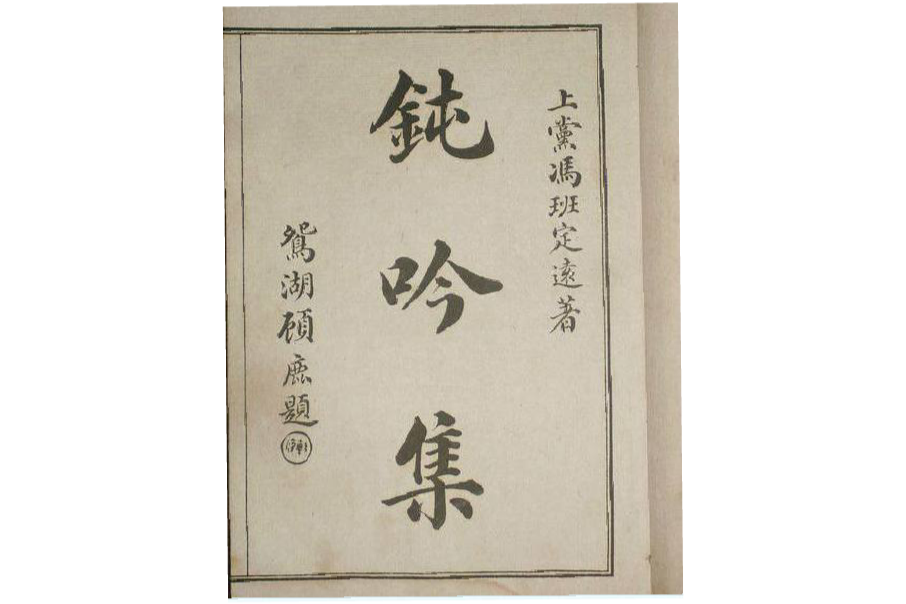 上黨馮班定遠著
鈍吟集
鴛湖顧鹿題